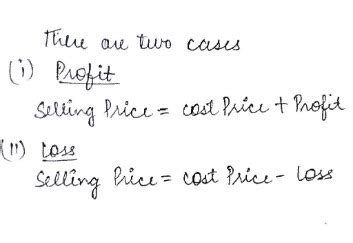 There are two cases
(i) Profit
Selling Price = cost Price + Profit
(ii) Loss
Selling Price = cost Price - Loss